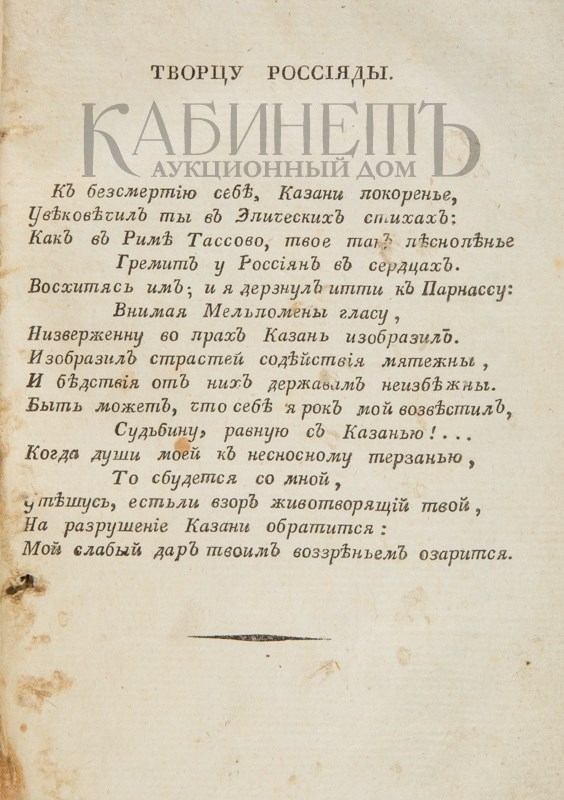 ТВОРЦУ РОССІЯДЫ.
КАБИНЕТЪ
АУКЦИОННЫЙ ДОМ
Къ безсмертію себѣ, Казани покоренье,
Увѣковѣчилъ ты въ Эпическихъ стихахъ:
Какъ въ Римѣ Тассово, твое такъ пѣснопѣнье
Гремитъ у Россіянъ въ сердцахъ.
Восхитясь имъ; и я дерзнулъ итти къ Парнассу:
Внимая Мельпомены гласу,
Низверженну во прахъ Казань изобразилъ.
Изобразилъ страстей содѣйствія мятежны,
И бѣдствія отъ нихъ державамъ неизбѣжны.
Быть можетъ, что себѣ я рокъ мой возвѣстилъ,
Судьбину, равную съ Казанью!...
Когда души моей къ несносному терзанью,
То сбудется со мной,
Утѣшусь, естьли взоръ животворящій твой,
На разрушеніе Казани обратится:
Мой слабый даръ твоимъ воззрѣньемъ озарится.